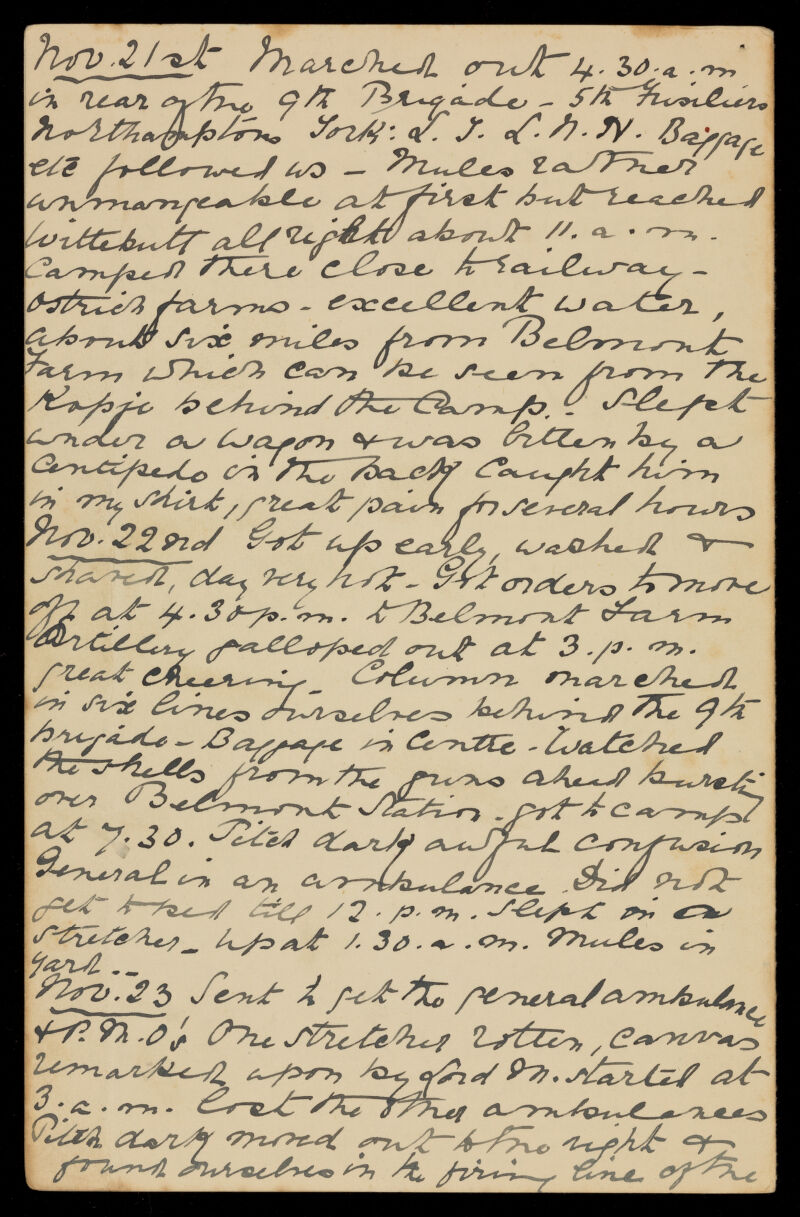 Nov. 21st Marched out 4.30.a.m
in rear of the 9th Brigade - 5th Fusiliers
Northamptons York: L. I. L. N. N. Baggage
etc followed us - Mules rather
unmangeable at first but reached
Wittebutt all right about 11.a.m.
Camped there close to railway -
Ostrich farms - excellent water,
about six miles from Belmont
Farm which can be seen from the
Kopje behind the Camp. - Slept
under a wagon & was bitten by a
Centipede in the back Caught him
in my shirt, great pain for several hours
Nov. 22nd Got up early, washed &
shaved, day very hot - Got orders to move
off at 4.30 p.m. to Belmont Farm
Artillery galloped out at 3.p.m.
great cheering - Column marched
in six lines ourselves behind the 9th
brigade - Baggage in Centre - Watched
the shells from the guns ahead bursting
over Belmont Station - got to camp
at 7.30. Pitch dark awful confusion
General in an ambulance. Did not
get to bed till 12.p.m. Slept on a
stretcher - Up at 1.30.a.m. Mules in
yard --
Nov. 23 Sent to get the general ambulance
& P.M.O's One stretcher rotten, canvas
remarked upon by Lord M. started at
3.a.m. Lost the other ambulances
Pitch dark moved out to the right &
found ourselves in the firing line of the